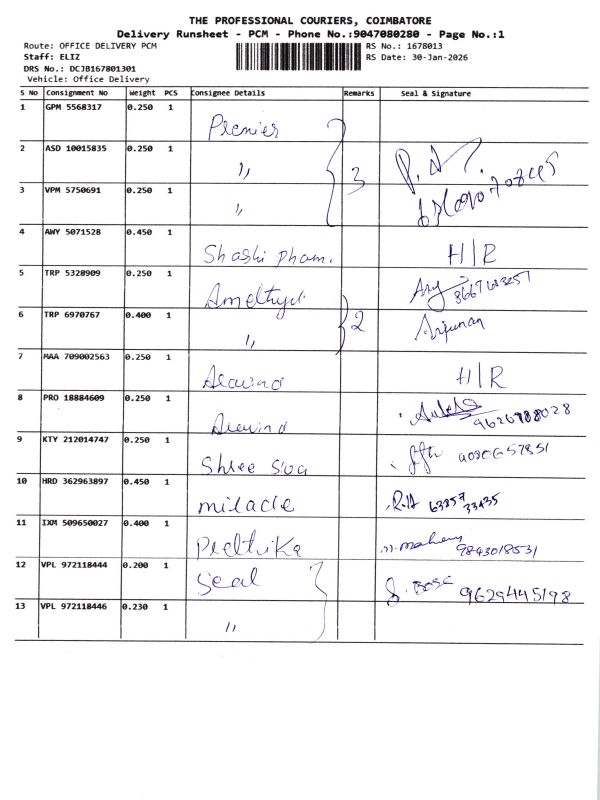 THE PROFESSIONAL COURIERS, COIMBATORE
Delivery Runsheet - PCM - Phone No.:9047080280 - Page No.:1
Route: OFFICE DELIVERY PCM
RS No.: 1678013
Staff: ELIZ
RS Date: 30-Jan-2026
DRS No.: DCJB167801301
Vehicle: Office Delivery
S No Consignment No Weight PCS Consignee Details Remarks Seal & Signature
1 GPM 5568317 0.250 1 Premier
2 ASD 10015835 0.250 1 〃 3
3 VPM 5750691 0.250 1 〃
4 AWY 5071528 0.450 1 Shashi Pham. H|R
5 TRP 5320909 0.250 1 Amethyst
6 TRP 6970767 0.400 1 〃 2 Arjunan
7 MAA 709002563 0.250 1 Aravind H|R
8 PRO 18884609 0.250 1 Aravind
9 KTY 212014747 0.250 1 Shree
10 HRD 362963897 0.450 1 miracle R.A 63857 33435
11 IXM 509650027 0.400 1 Prethika 9843018531
12 VPL 972118444 0.200 1 Seal J. Bose 9629445198
13 VPL 972118446 0.230 1 〃